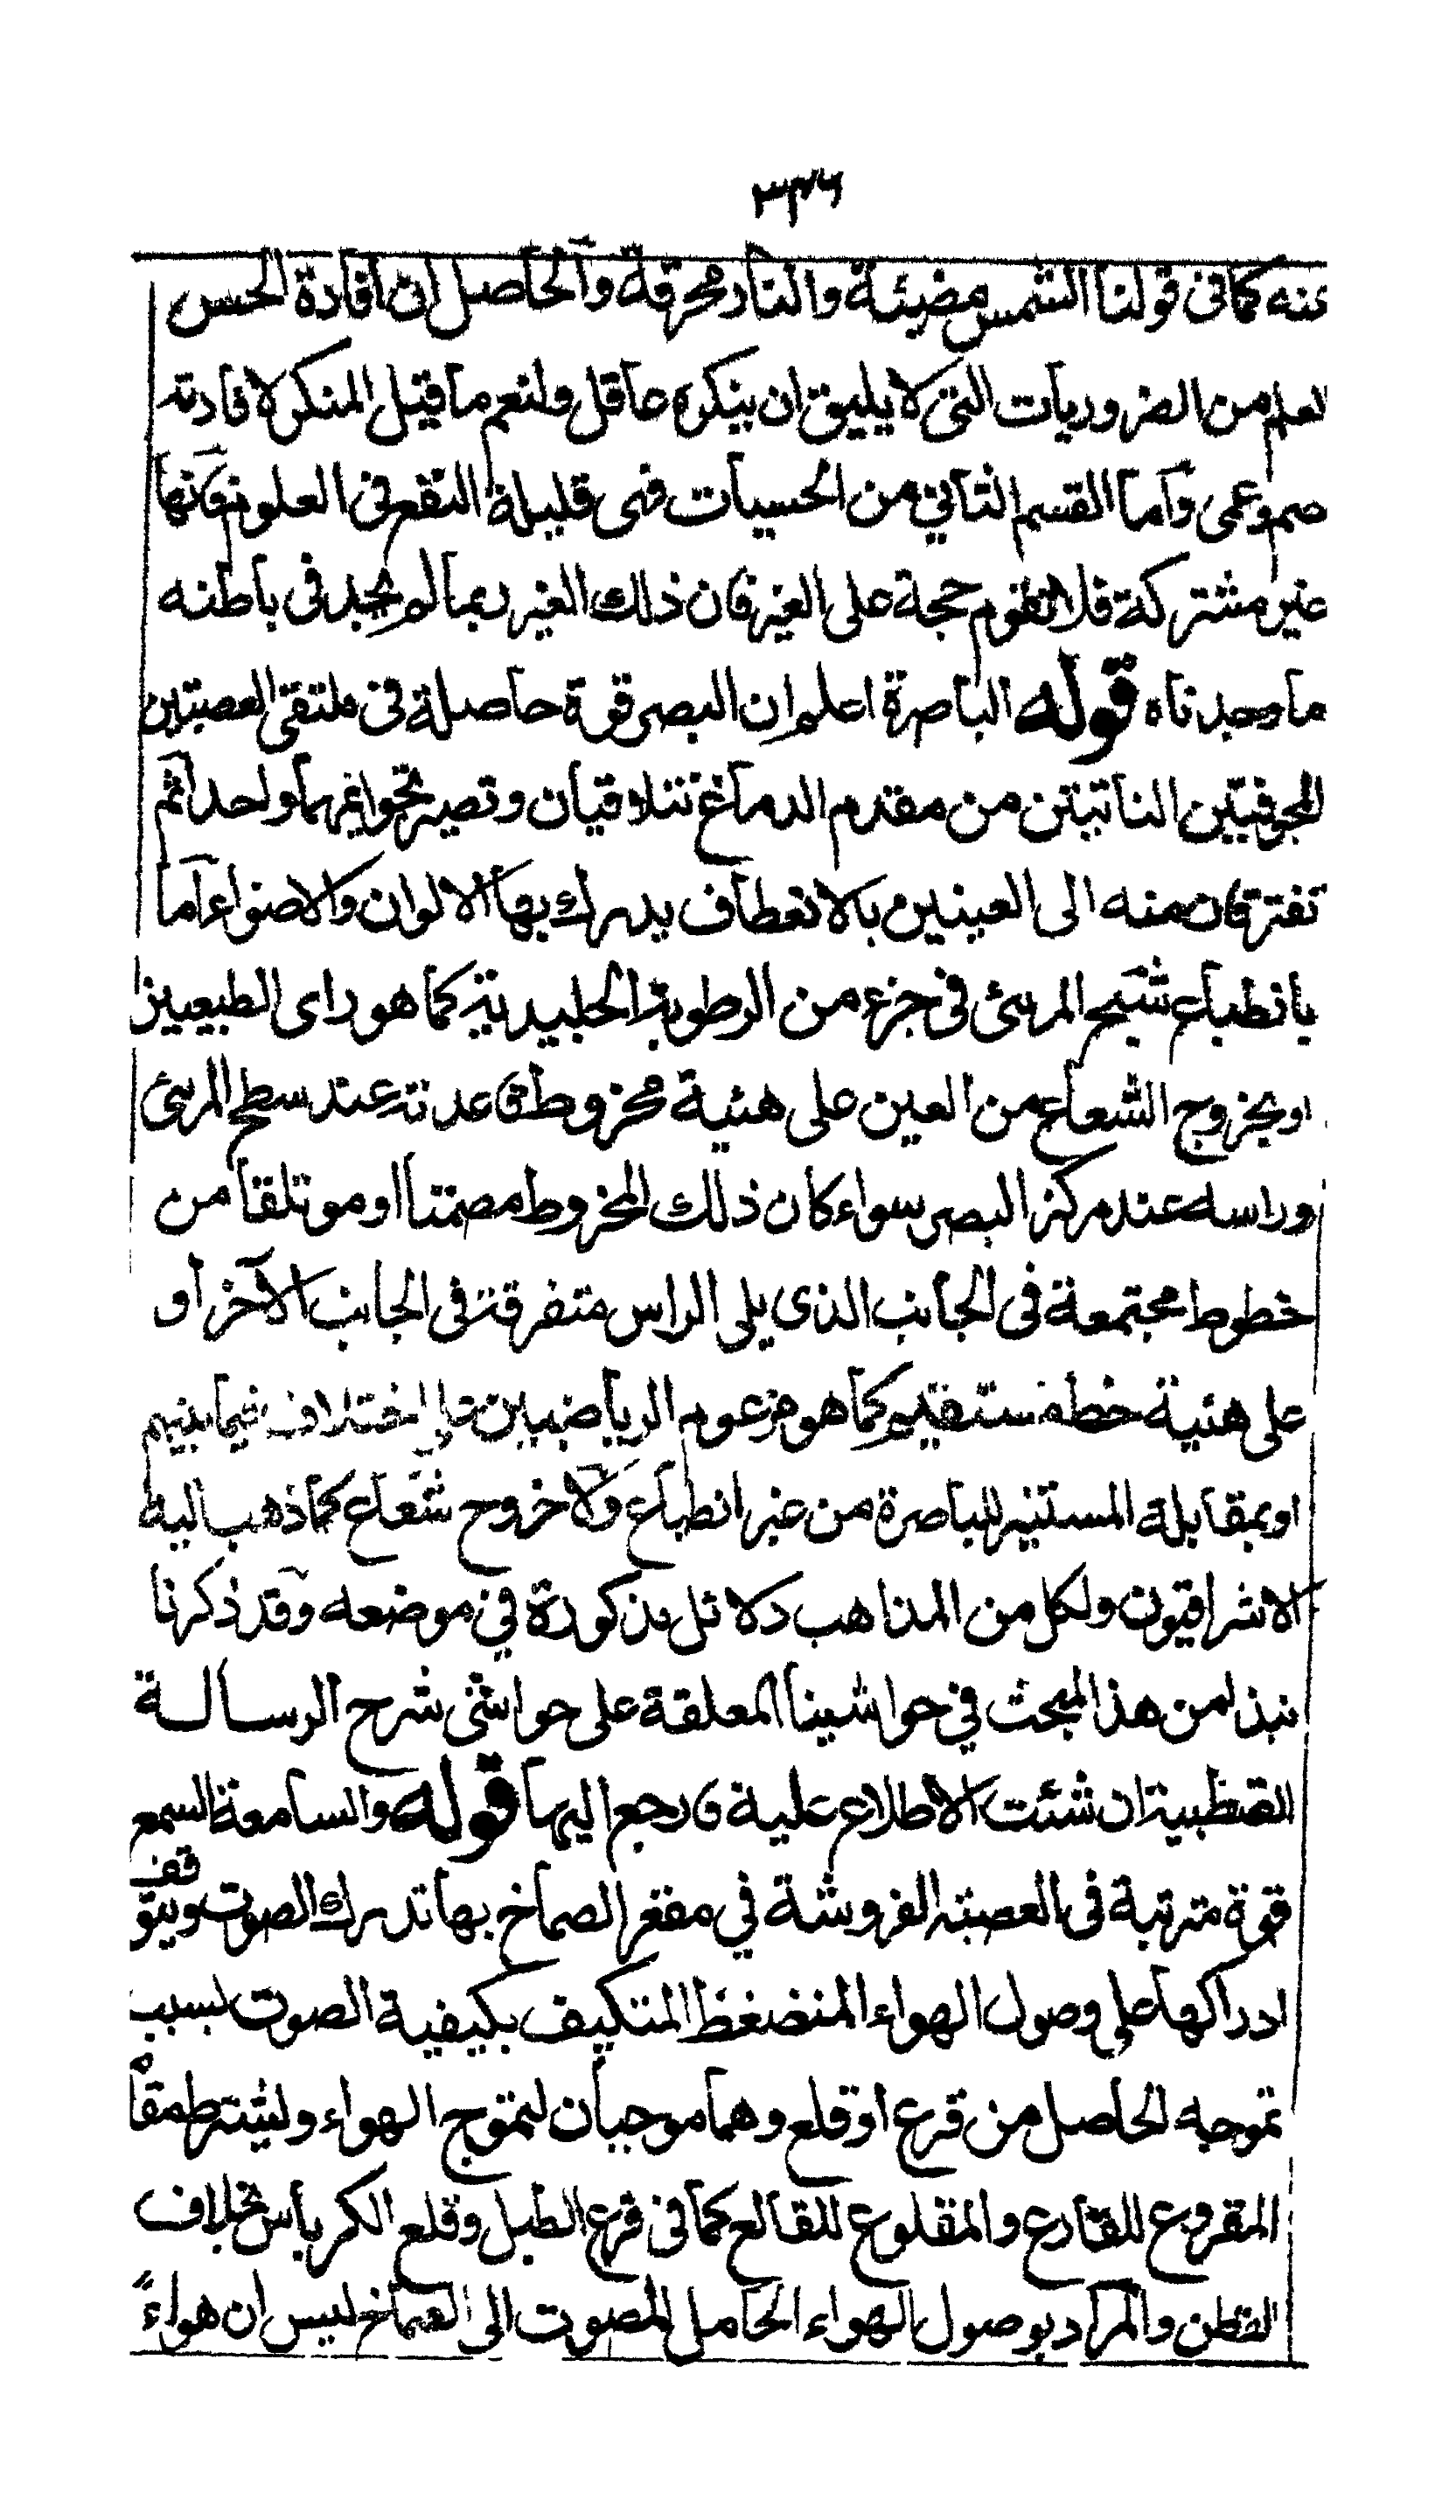 ٣٢٦
عنه كما فى قولنا الشمس مضيئة والنار محرقة والحاصل ان افادة الحس
لعلم من الضروريات التى لا يليق ان ينكره عاقل ولنعم ما قيل المنكر لافادته
صم وعمى واما القسم الثاني من الحسيات فهى قليلة النفع فى العلوم فانها
غير مشتركة فلا تقوم حجة على الغير فان ذلك الغير ربما لم يجد فى باطنه
ما وجدناه قوله الباصرة اعلم ان البصر قوة حاصلة فى ملتقى العصبتين
المجوفتين الناتبتين من مقدم الدماغ تتلاقيان وتصير تجوايفهما واحدا ثم
تفترقان منه الى العينين بالانعطاف يدرك بها الالوان والاضواء اما
بانطباع شبح المرئى فى جزء من الرطوبة الجليدية كما هو راى الطبيعيين
او بخروج الشعاع من العين على هيئة مخروط قاعدته عند سطح المرئى
وراسه عند مركز البصر سواء كان ذلك المخروط مصمتا او موتلفا من
خطوط مجتمعة فى الجانب الذى يلى الراس متفرقة فى الجانب الآخر او
على هئية خط مستقيم كما هو مزعوم الرياضيين على اختلاف فيما بينهم
او بمقابلة المستنير للباصرة من غير انطباع ولا خروج شعاع كما ذهب اليه
الاشراقيون ولكل من المذاهب دلائل مذكورة في موضعه وقد ذكرنا
نبذا من هذا المبحث في حواشينا المعلقة على حواشى شرح الرسالة
القطبية ان شئت الاطلاع عليه فارجع اليها قوله والسامعة السمع
قوة مترتبة فى العصبة المفروشة في مقعر الصماخ بها تدرك الصوت ويتوقف
ادراكها على وصول الهواء المنضغظ المتكيف بكيفية الصوت بسبب
تموجه الحاصل من قرع او قلع وهما موجبان لتموج الهواء ويشترط مقاومة
المقروع للقارع والمقلوع للقالع كما فى قرع الطبل وقلع الكرباس بخلاف
القطن والمراد بوصول الهواء الحامل للصوت الى الصماخ ليس ان هواءً